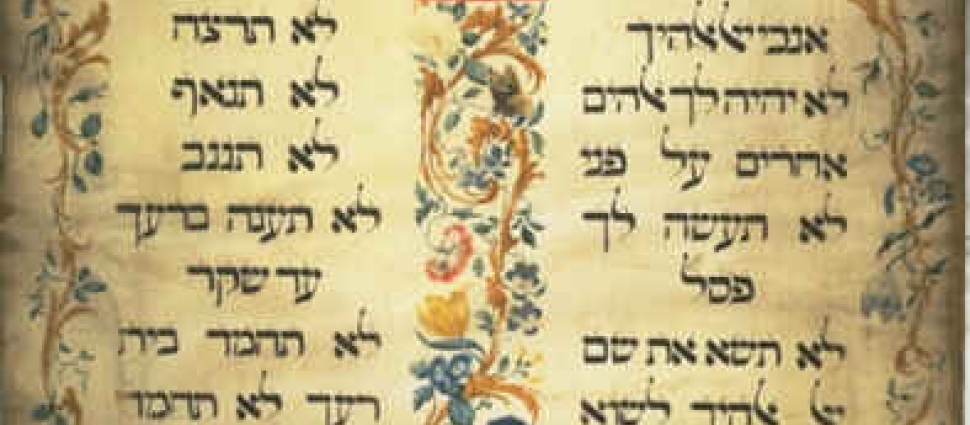 אנכי יי אלהיך
לא יהיה לך אלהים
אחרים על פני
לא תעשה לך
פסל
לא תשא את שם
יי אלהיך לשוא
לא תרצח
לא תנאף
לא תגנב
לא תענה ברעך
עד שקר
לא תחמד בית
רעך לא תחמד